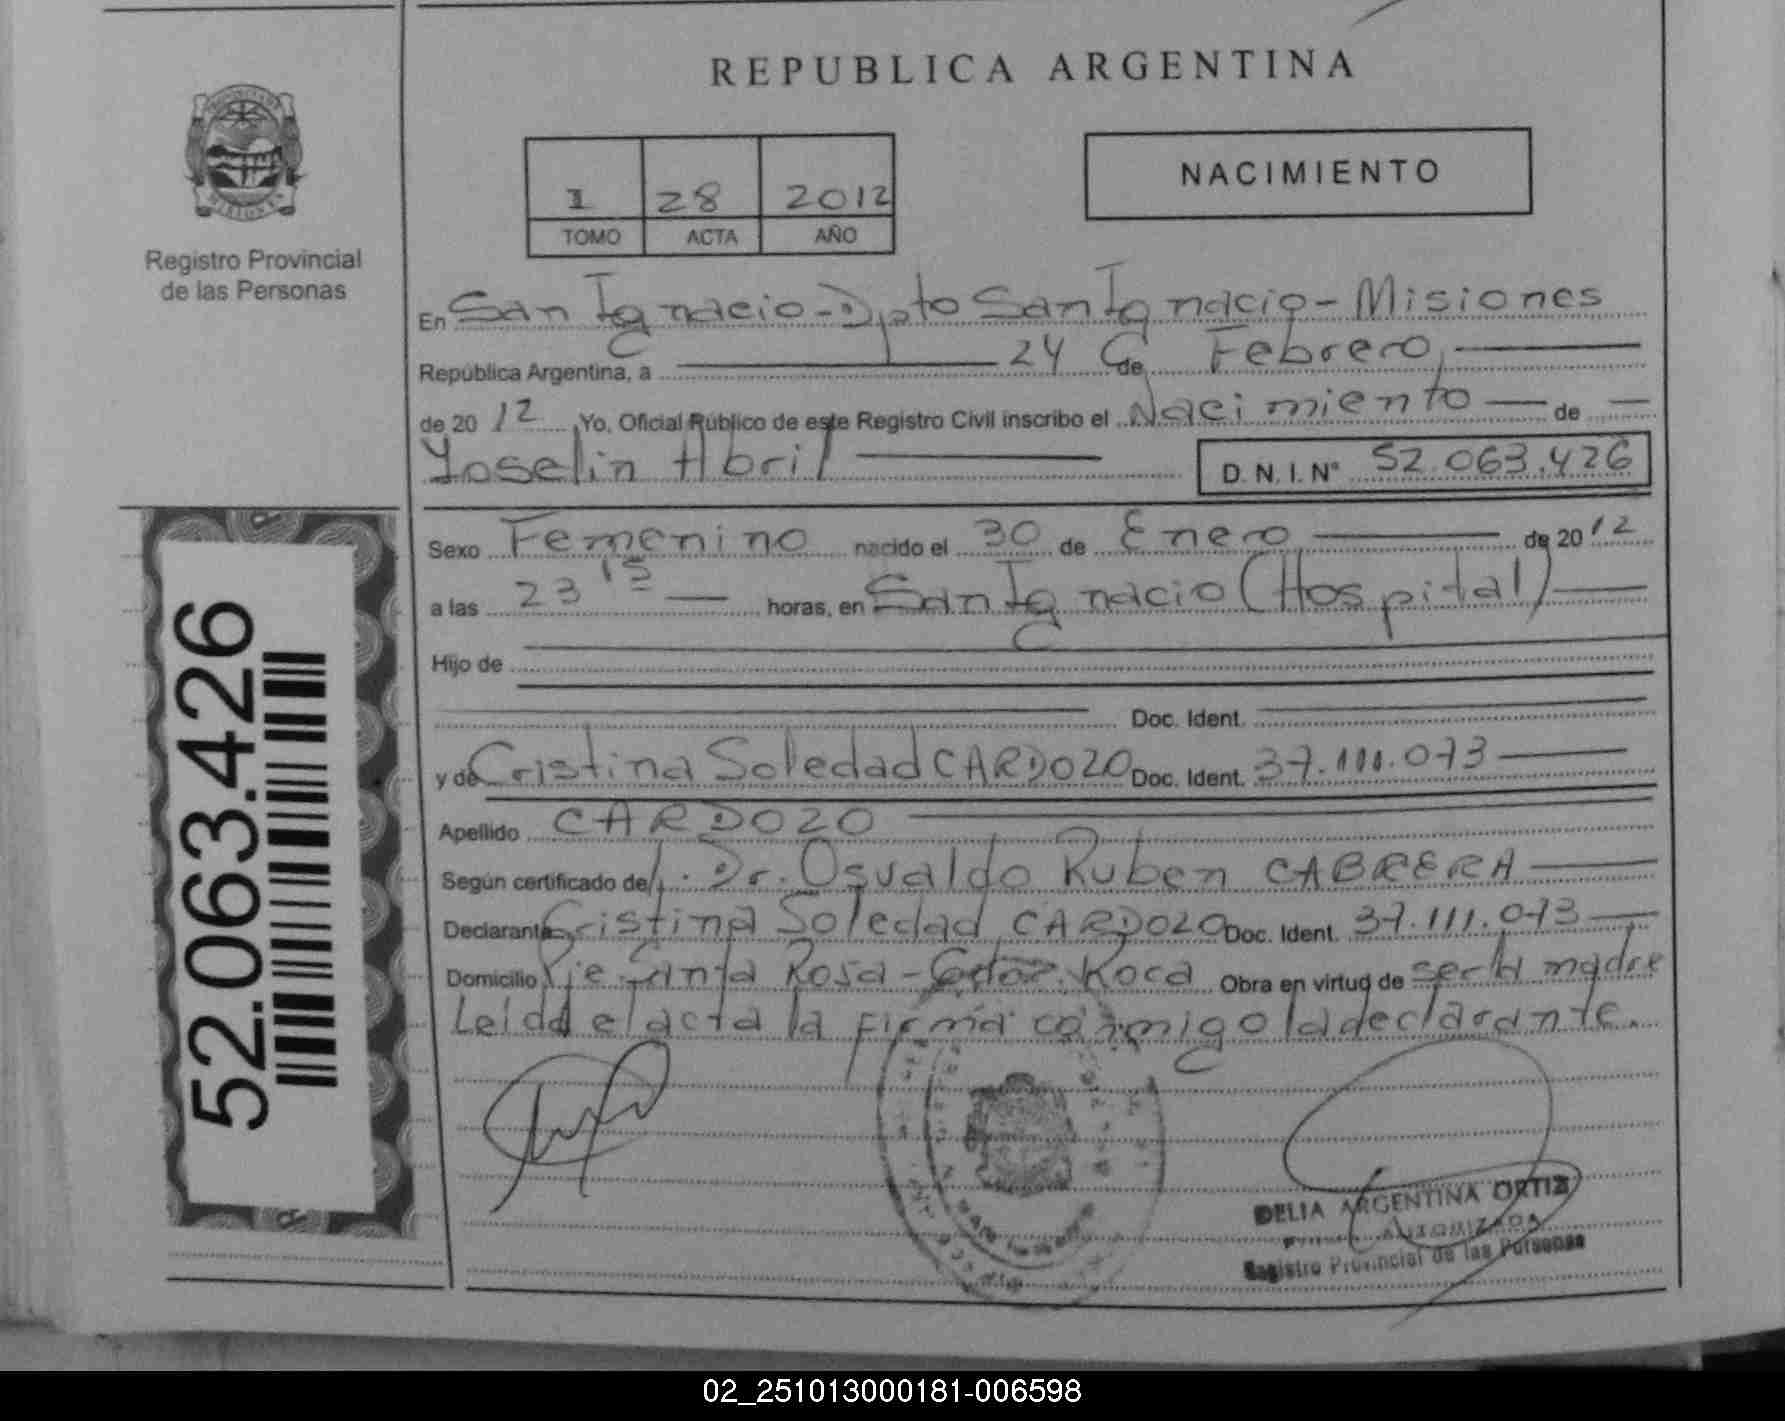 REPUBLICA ARGENTINA
1 28 2012
TOMO ACTA AÑO
NACIMIENTO
PROVINCIA DE MISIONES
Registro Provincial
de las Personas
En San Ignacio - Dpto San Ignacio - Misiones
República Argentina, a 24 de Febrero,
de 2012 Yo, Oficial Público de este Registro Civil inscribo el Nacimiento de
Yoselin Abril D.N.I. N° 52.063.426
Sexo Femenino nacido el 30 de Enero de 2012
a las 23 15 horas, en San Ignacio (Hospital)
Hijo de
Doc. Ident.
y de Cristina Soledad CARDOZO Doc. Ident. 37.111.073
Apellido CARDOZO
Según certificado de Dr. Osvaldo Ruben CABRERA
Declarante Cristina Soledad CARDOZO Doc. Ident. 37.111.073
Domicilio Pje Santa Rosa - Roca Obra en virtud de ser la madre
Leida el acta la firma conmigo la declarante.
52.063.426
DELIA ARGENTINA ORTIZ
AUTORIZADA
Registro Provincial de las Personas
02_251013000181-006598